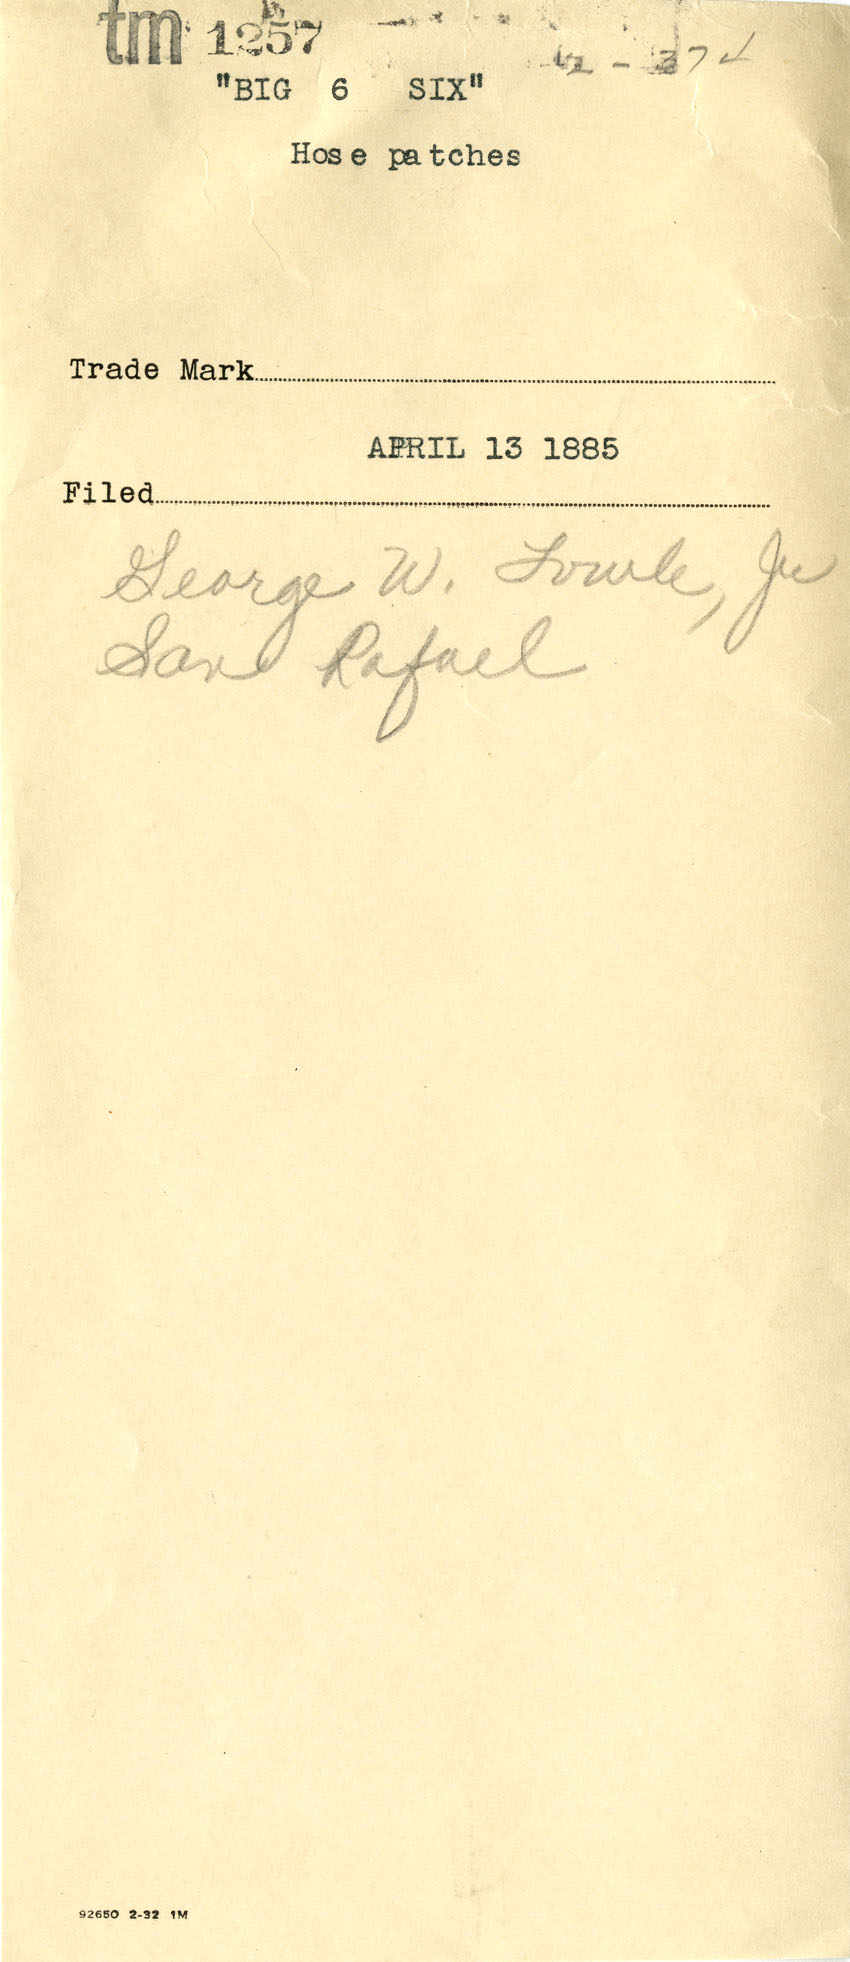 tm 1257
"BIG 6 SIX"
Hose patches
Trade Mark
APRIL 13 1885
Filed
George W. Fowle, Jr
San Rafael
92650 2-32 1M